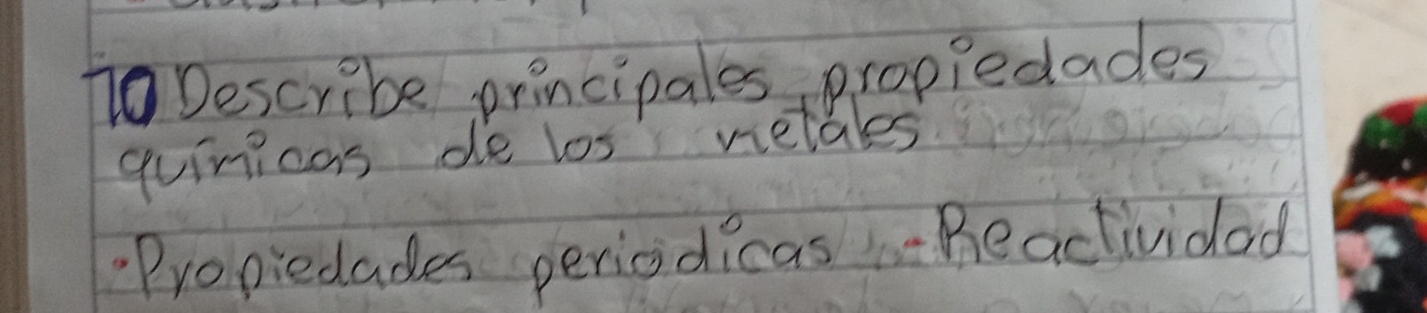 10 Describe principales propiedades
químicas de los metales
• Propiedades periódicas - Reactividad